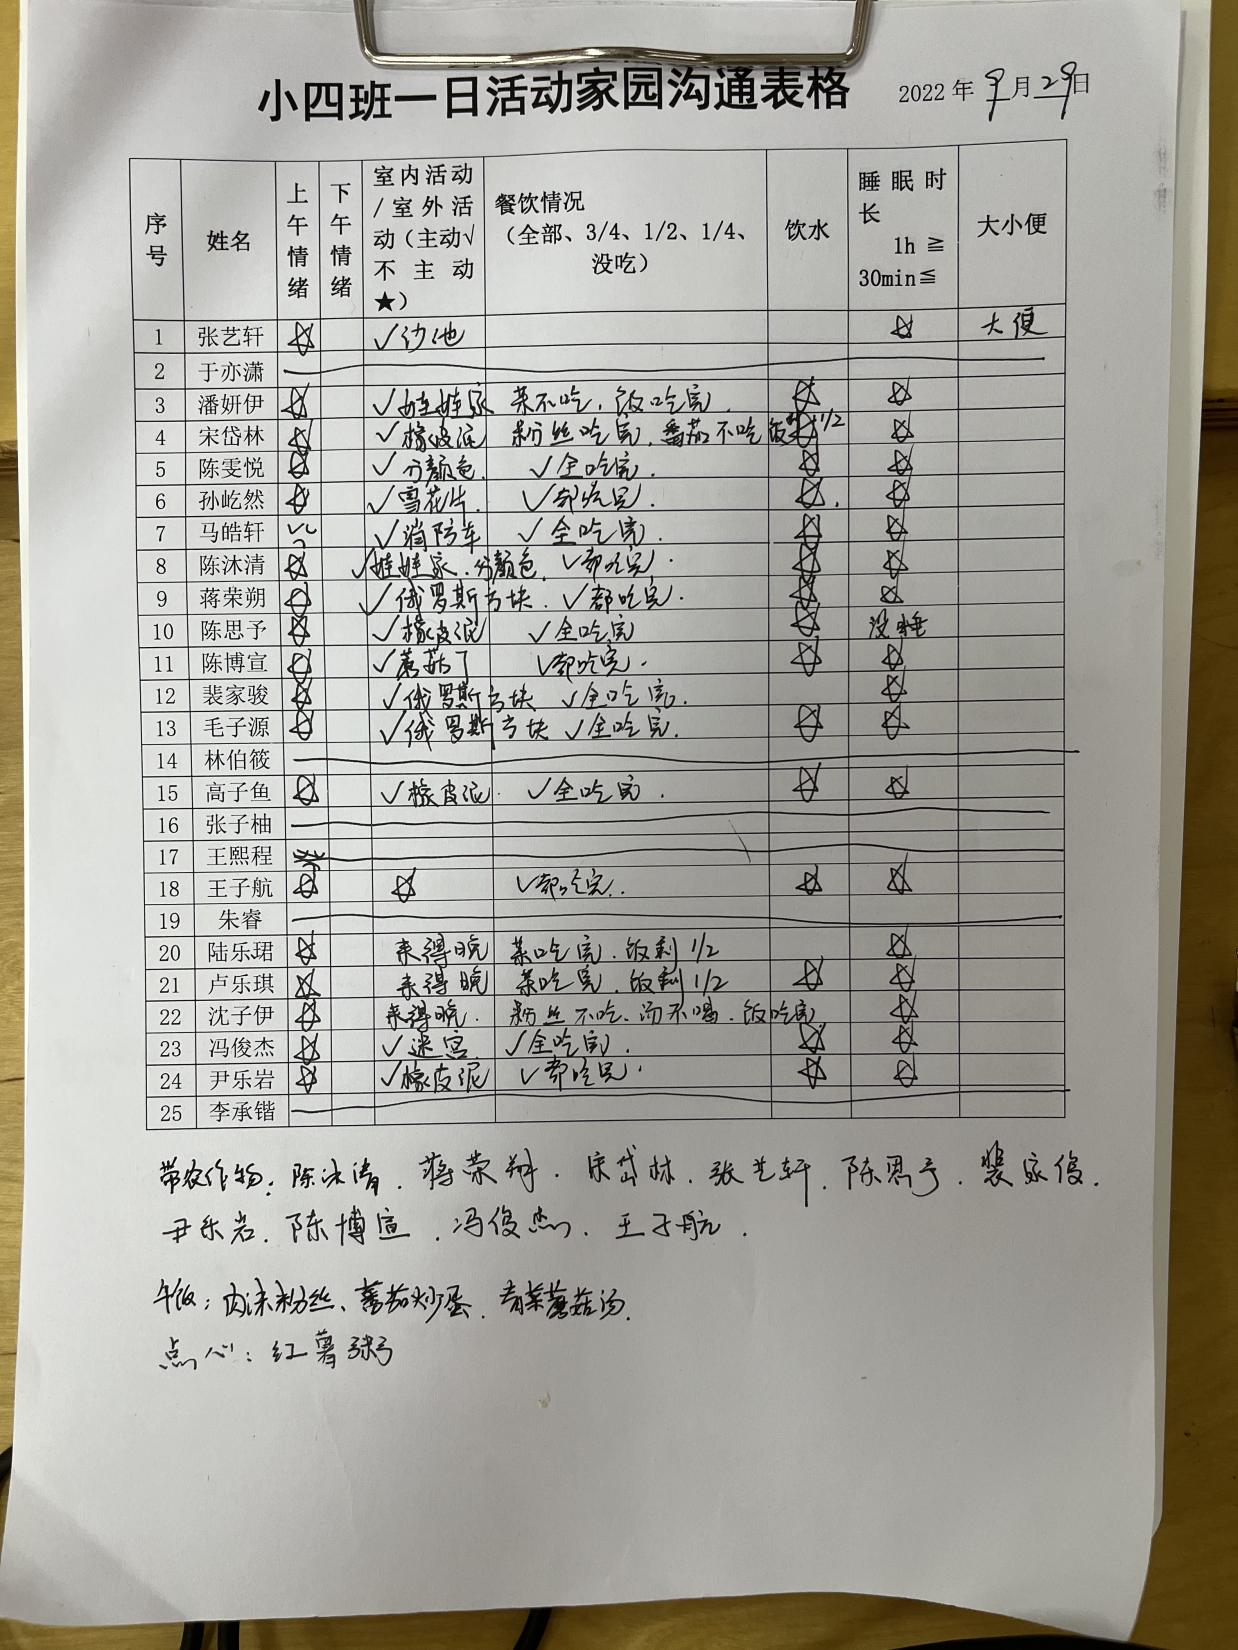 小四班一日活动家园沟通表格 2022年9月29日
序号 姓名 上午情绪 下午情绪 室内活动/室外活动（主动√不主动★） 餐饮情况（全部、3/4、1/2、1/4、没吃） 饮水 睡眠时长 1h≧ 30min≦ 大小便
1 张艺轩 ☆ √沙池 ☆ 大便
2 于亦潇
3 潘妍伊 ☆ √娃娃家 菜不吃，饭吃完. ☆ ☆
4 宋岱林 ☆ √橡皮泥 粉丝吃完，番茄不吃 饭 1/2 ☆ ☆
5 陈雯悦 ☆ √分颜色. √全吃完. ☆ ☆
6 孙屹然 ☆ √雪花片. √都吃完. ☆ ☆
7 马皓轩 √消防车 √全吃完. ☆ ☆
8 陈沐清 ☆ √娃娃家.分颜色. √都吃完. ☆ ☆
9 蒋荣朔 ☆ √俄罗斯方块. √都吃完. ☆ ☆
10 陈思予 ☆ √橡皮泥 √全吃完 ☆ 没睡
11 陈博宣 ☆ √蘑菇丁 √都吃完. ☆ ☆
12 裴家骏 ☆ √俄罗斯方块 √全吃完. ☆
13 毛子源 ☆ √俄罗斯方块 √全吃完. ☆ ☆
14 林伯筱
15 高子鱼 ☆ √橡皮泥. √全吃完. ☆ ☆
16 张子柚
17 王熙程
18 王子航 ☆ ☆ √都吃完. ☆ ☆
19 朱睿
20 陆乐珺 ☆ 来得晚 菜吃完.饭剩1/2 ☆
21 卢乐琪 ☆ 来得晚 菜吃完.饭剩1/2 ☆ ☆
22 沈子伊 ☆ 来得晚. 粉丝不吃.汤不喝.饭吃完 ☆
23 冯俊杰 ☆ √迷宫 √全吃完. ☆ ☆
24 尹乐岩 ☆ √橡皮泥 √都吃完. ☆ ☆
25 李承锴
带农作物：陈沐清．蒋荣朔．宋岱林．张艺轩．陈思予．裴家俊．
尹乐岩．陈博宣．冯俊杰．王子航．
午饭：肉沫粉丝、番茄炒蛋．青菜蘑菇汤．
点心：红薯粥